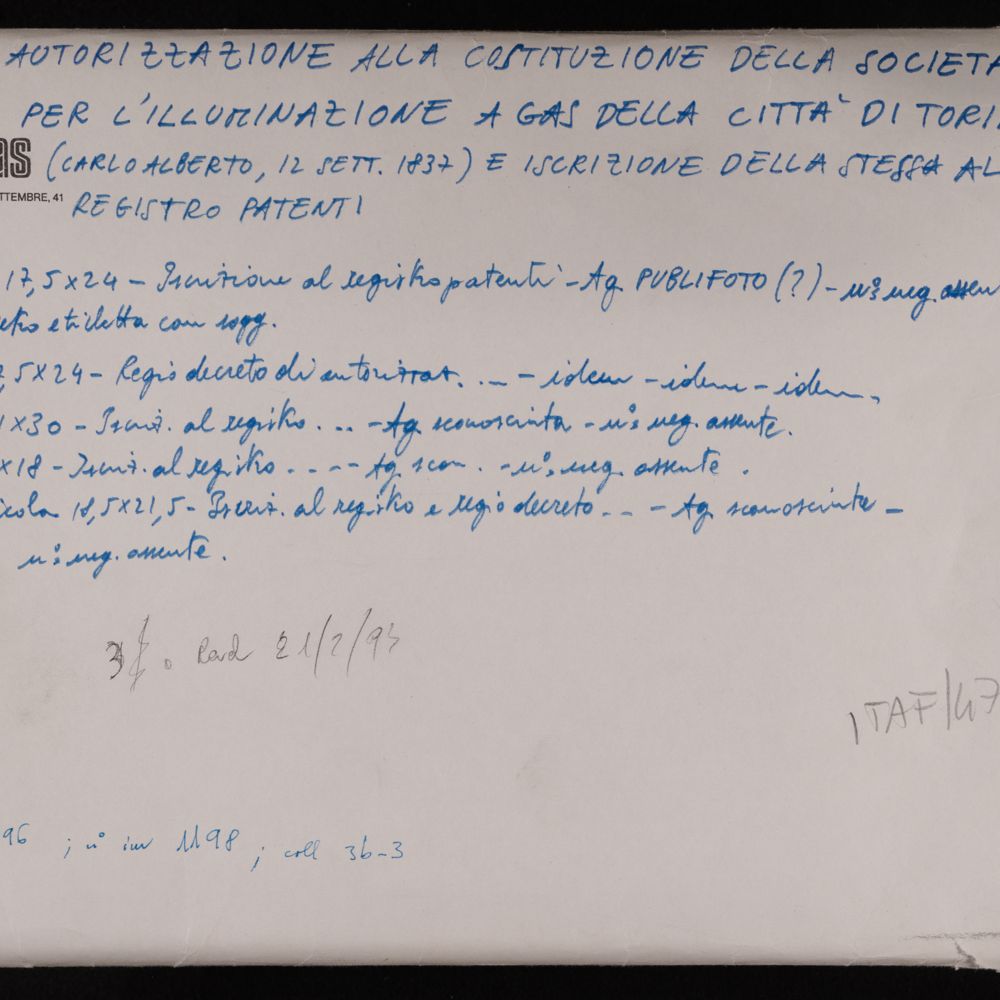 AUTORIZZAZIONE ALLA COSTITUZIONE DELLA SOCIETA
PER L'ILLUMINAZIONE A GAS DELLA CITTA' DI TORI
as (CARLO ALBERTO, 12 SETT. 1837) E ISCRIZIONE DELLA STESSA AL
TTEMBRE, 41
REGISTRO PATENTI
17,5x24 - Iscrizione al registro patenti - Ag. PUBLIFOTO (?) - n° neg. assen
etro etichetta con sogg.
,5x24 - Regio decreto di autorizzaz. ... - idem - idem - idem.
x30 - Iscriz. al registro ... - Ag. sconosciuta - n° neg. assente.
x18 - Iscriz. al registro .... - Ag. scon. - n° neg. assente.
icola 18,5x21,5 - Iscriz. al registro e regio decreto ... - Ag. sconosciuta -
n° neg. assente.
21/2/93
ITAF/47
96 ; n° inv 1198 ; coll 3b-3